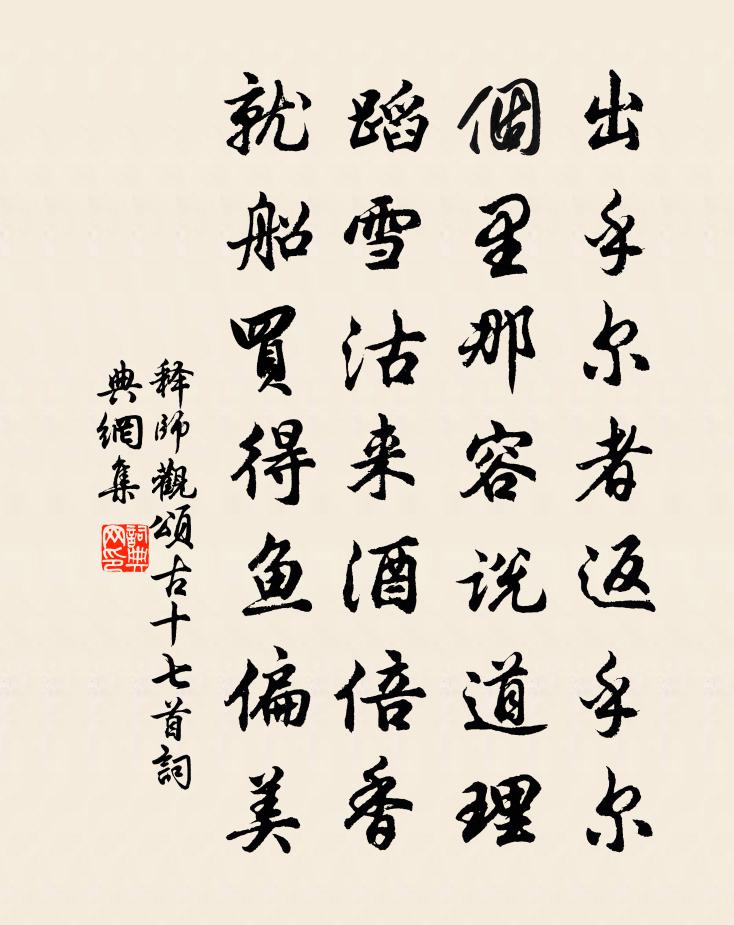 出乎尔者返乎尔
個里那容说道理
蹈雪沽来酒倍香
就船買得鱼偏美
释師觀頌古十七首詞
典網集
詞典
网印